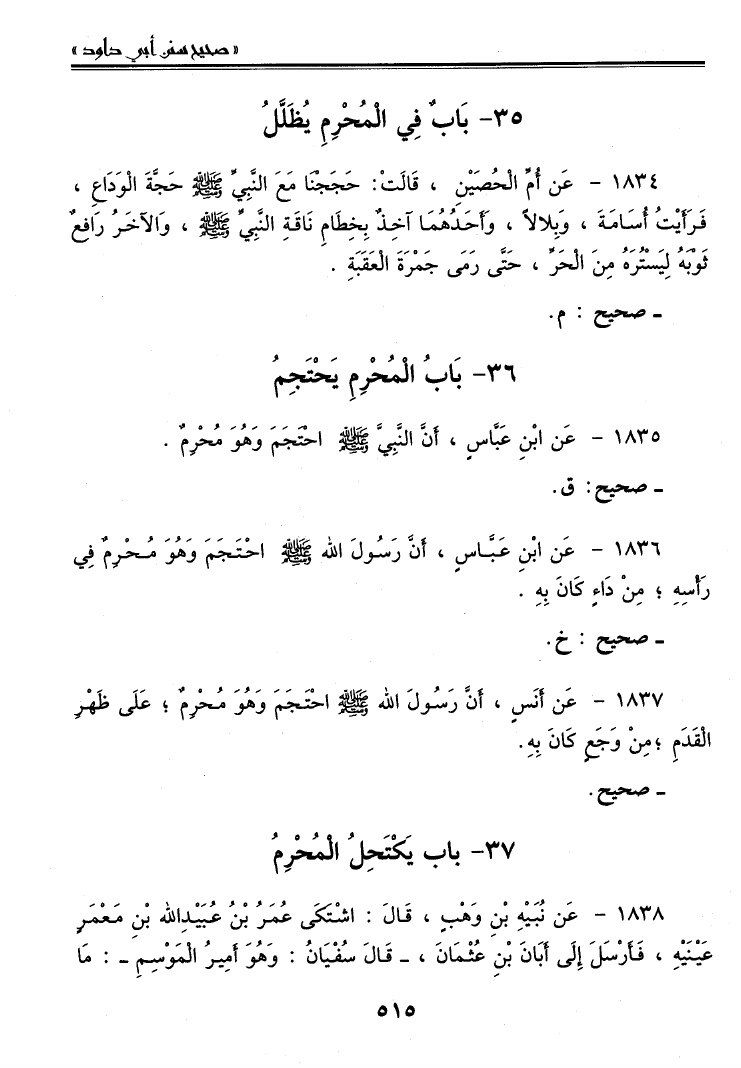 « صحيح سنن أبي داود »
٣٥- بَابٌ فِي الْمُحْرِمِ يُظَلَّلُ
١٨٣٤ - عَن أُمِّ الْحُصَيْنِ ، قَالَتْ: حَجَجْنَا مَعَ النَّبِيِّ ﷺ حَجَّةَ الْوَدَاعِ ،
فَرَأَيْتُ أُسَامَةَ ، وَبِلالاً ، وَأَحَدُهُمَا آخِذٌ بِخِطَامِ نَاقَةِ النَّبِيِّ ﷺ ، وَالآخَرُ رَافِعٌ
ثَوْبَهُ لِيَسْتُرَهُ مِنَ الْحَرِّ ، حَتَّى رَمَى جَمْرَةَ الْعَقَبَةِ .
ـ صحيح : م.
٣٦- بَابُ الْمُحْرِمِ يَحْتَجِمُ
١٨٣٥ - عَن ابْنِ عَبَّاسٍ ، أَنَّ النَّبِيَّ ﷺ احْتَجَمَ وَهُوَ مُحْرِمٌ .
ـ صحيح: ق.
١٨٣٦ - عَن ابْنِ عَبَّاسٍ ، أَنَّ رَسُولَ الله ﷺ احْتَجَمَ وَهُوَ مُحْرِمٌ فِي
رَأْسِهِ ؛ مِنْ دَاءٍ كَانَ بِهِ .
ـ صحيح : خ.
١٨٣٧ - عَن أَنَسٍ ، أَنَّ رَسُولَ الله ﷺ احْتَجَمَ وَهُوَ مُحْرِمٌ ؛ عَلَى ظَهْرِ
الْقَدَمِ ؛مِنْ وَجَعٍ كَانَ بِهِ.
ـ صحيح.
٣٧- باب يَكْتَحِلُ الْمُحْرِمُ
١٨٣٨ - عَن نُبَيْهِ بْنِ وَهْبٍ ، قَالَ : اشْتَكَى عُمَرُ بْنُ عُبَيْدِالله بْنِ مَعْمَرٍ
عَيْنَيْهِ ، فَأَرْسَلَ إِلَى أَبَانَ بْنِ عُثْمَانَ ، ـ قَالَ سُفْيَانُ : وَهُوَ أَمِيرُ الْمَوْسِمِ ـ : مَا
٥١٥